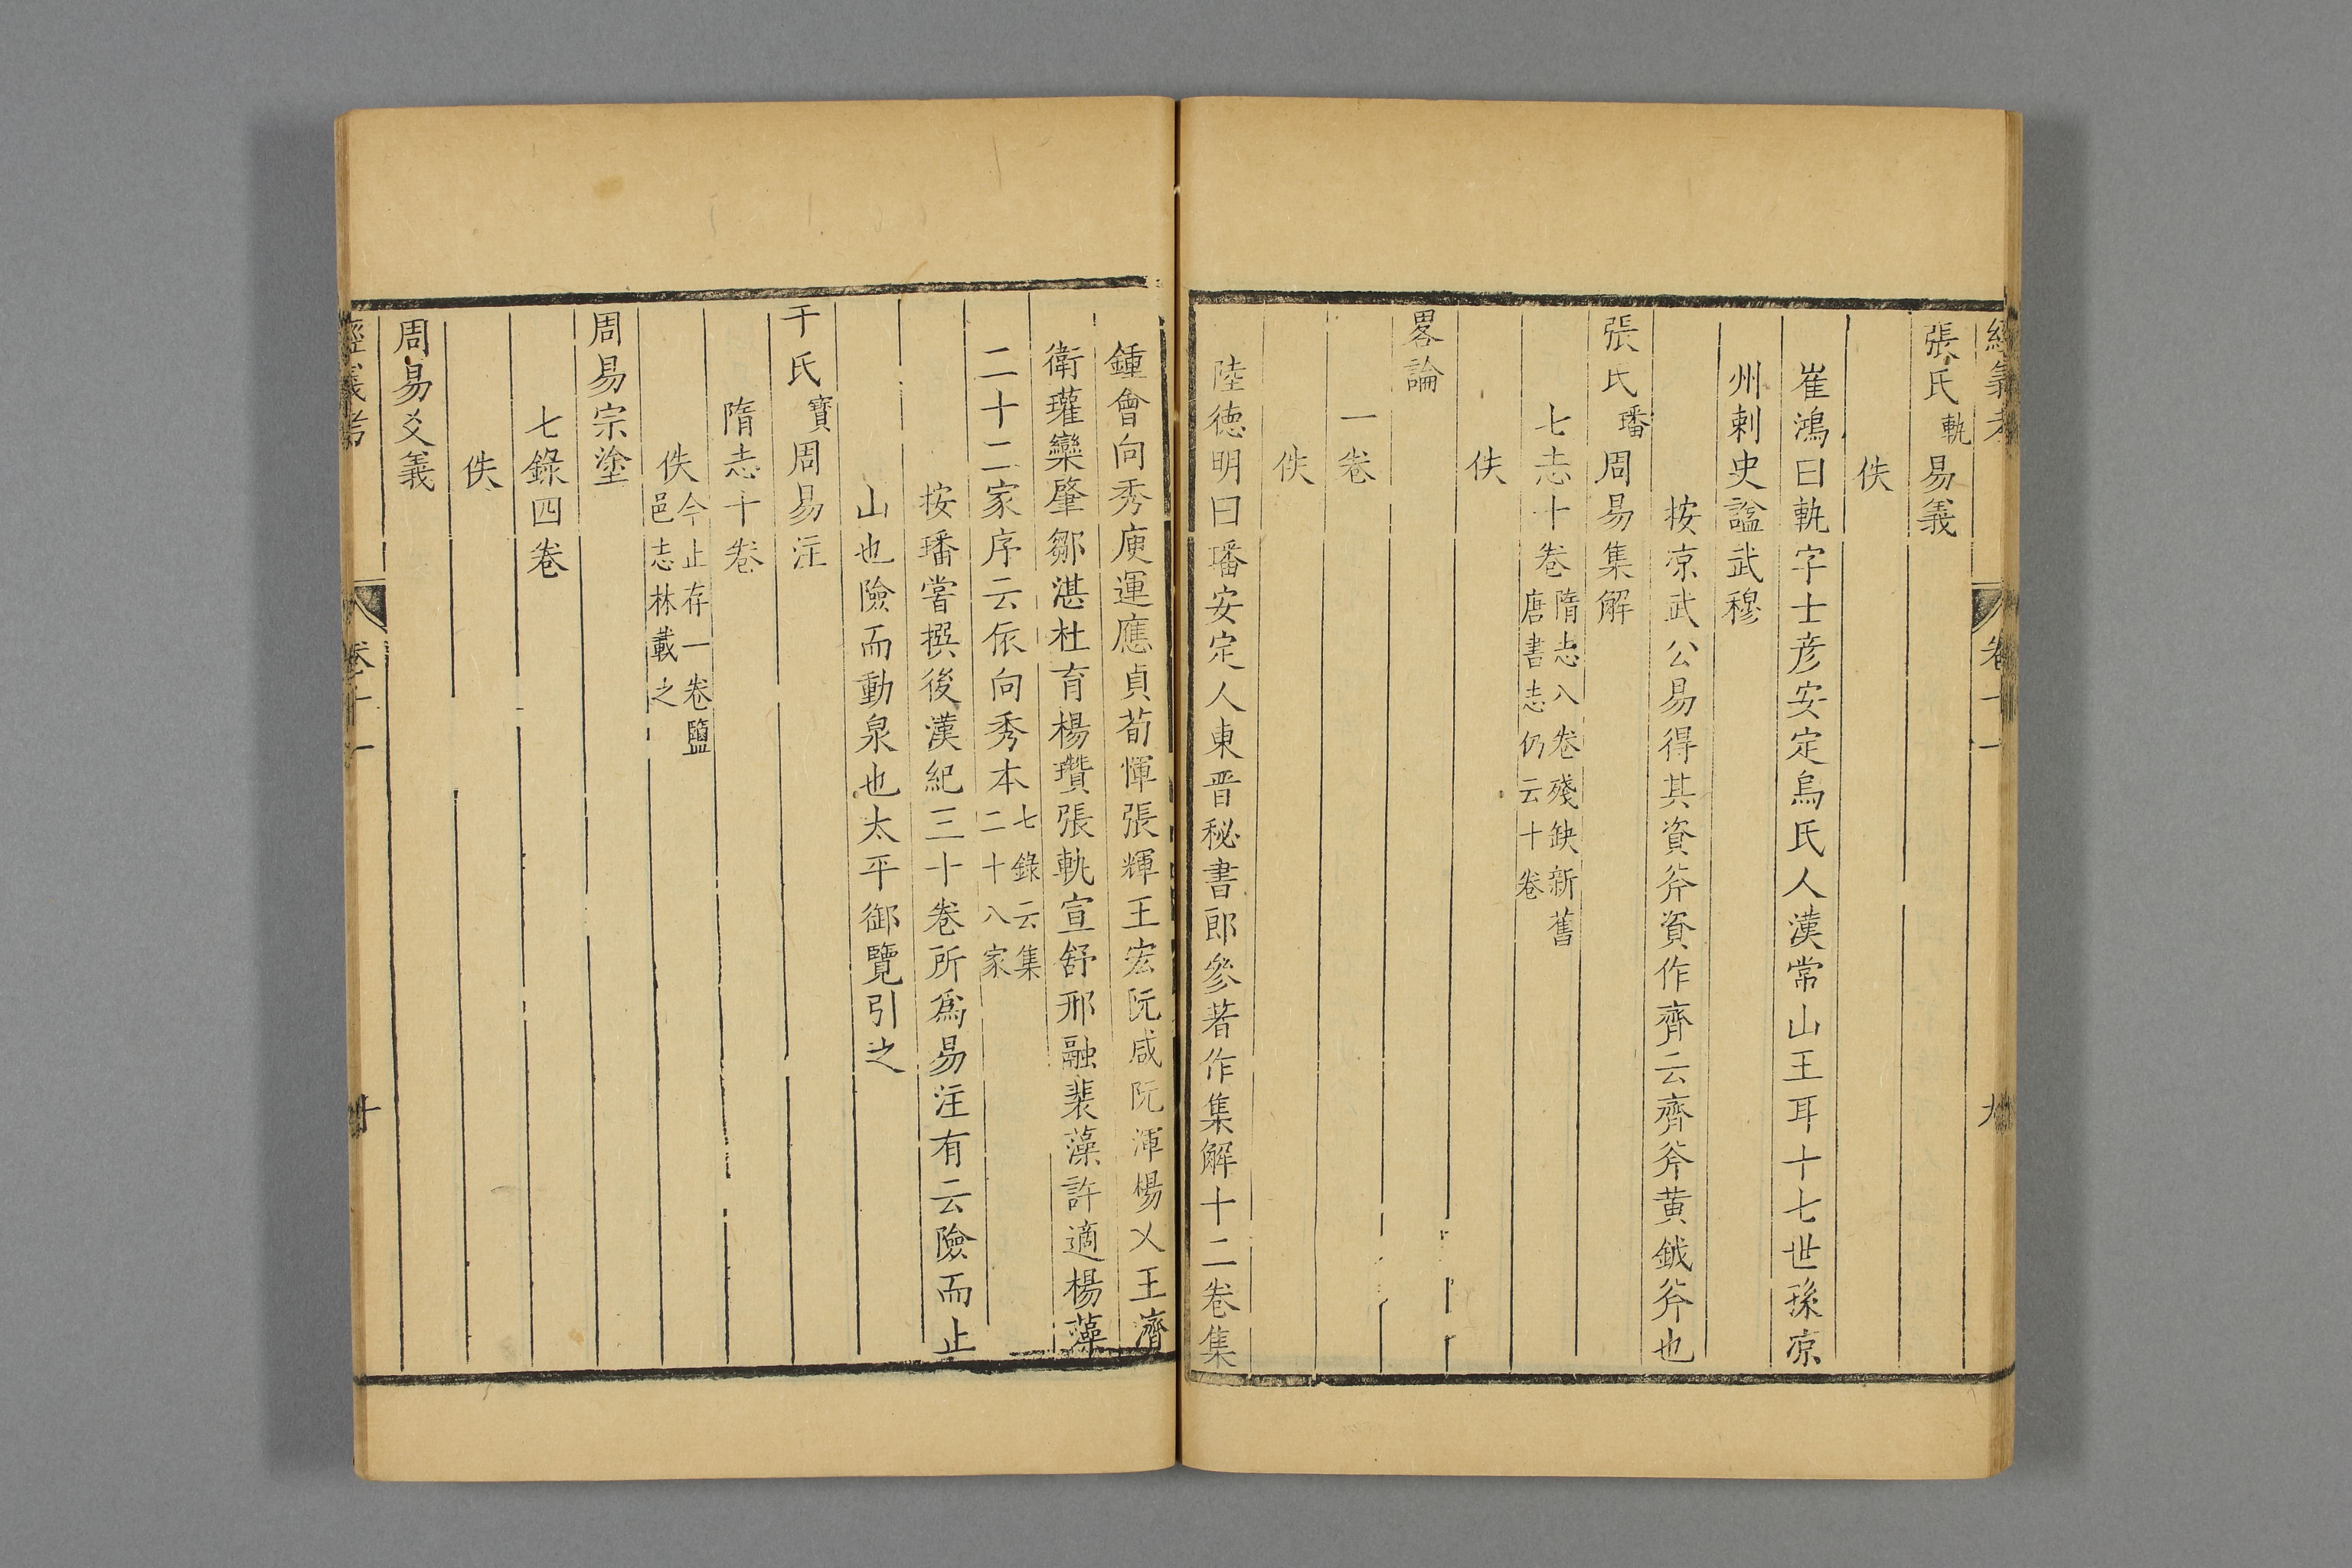 經義考 卷十一 九
張氏軌易義
佚
崔鴻曰軌字士彦安定烏氏人漢常山王耳十七世孫凉
州刺史諡武穆
按凉武公易得其資斧資作齊云齊斧黄鉞斧也
張氏璠周易集解
七志十卷隋志八卷殘缺新舊唐書志仍云十卷
佚
畧論
一卷
佚
陸德明曰璠安定人東晋秘書郎參著作集解十二卷集
鍾會向秀庾運應貞荀煇張輝王宏阮咸阮渾楊乂王濟
衛瓘欒肇鄒湛杜育楊瓚張軌宣舒邢融裴藻許適楊藻
二十二家序云依向秀本七錄云集二十八家
按璠嘗撰後漢紀三十卷所爲易注有云險而止
山也險而動泉也太平御覽引之
干氏寶周易注
隋志十卷
佚今止存一卷鹽邑志林載之
周易宗塗
七錄四卷
佚
周易爻義
經義考 卷十一 十